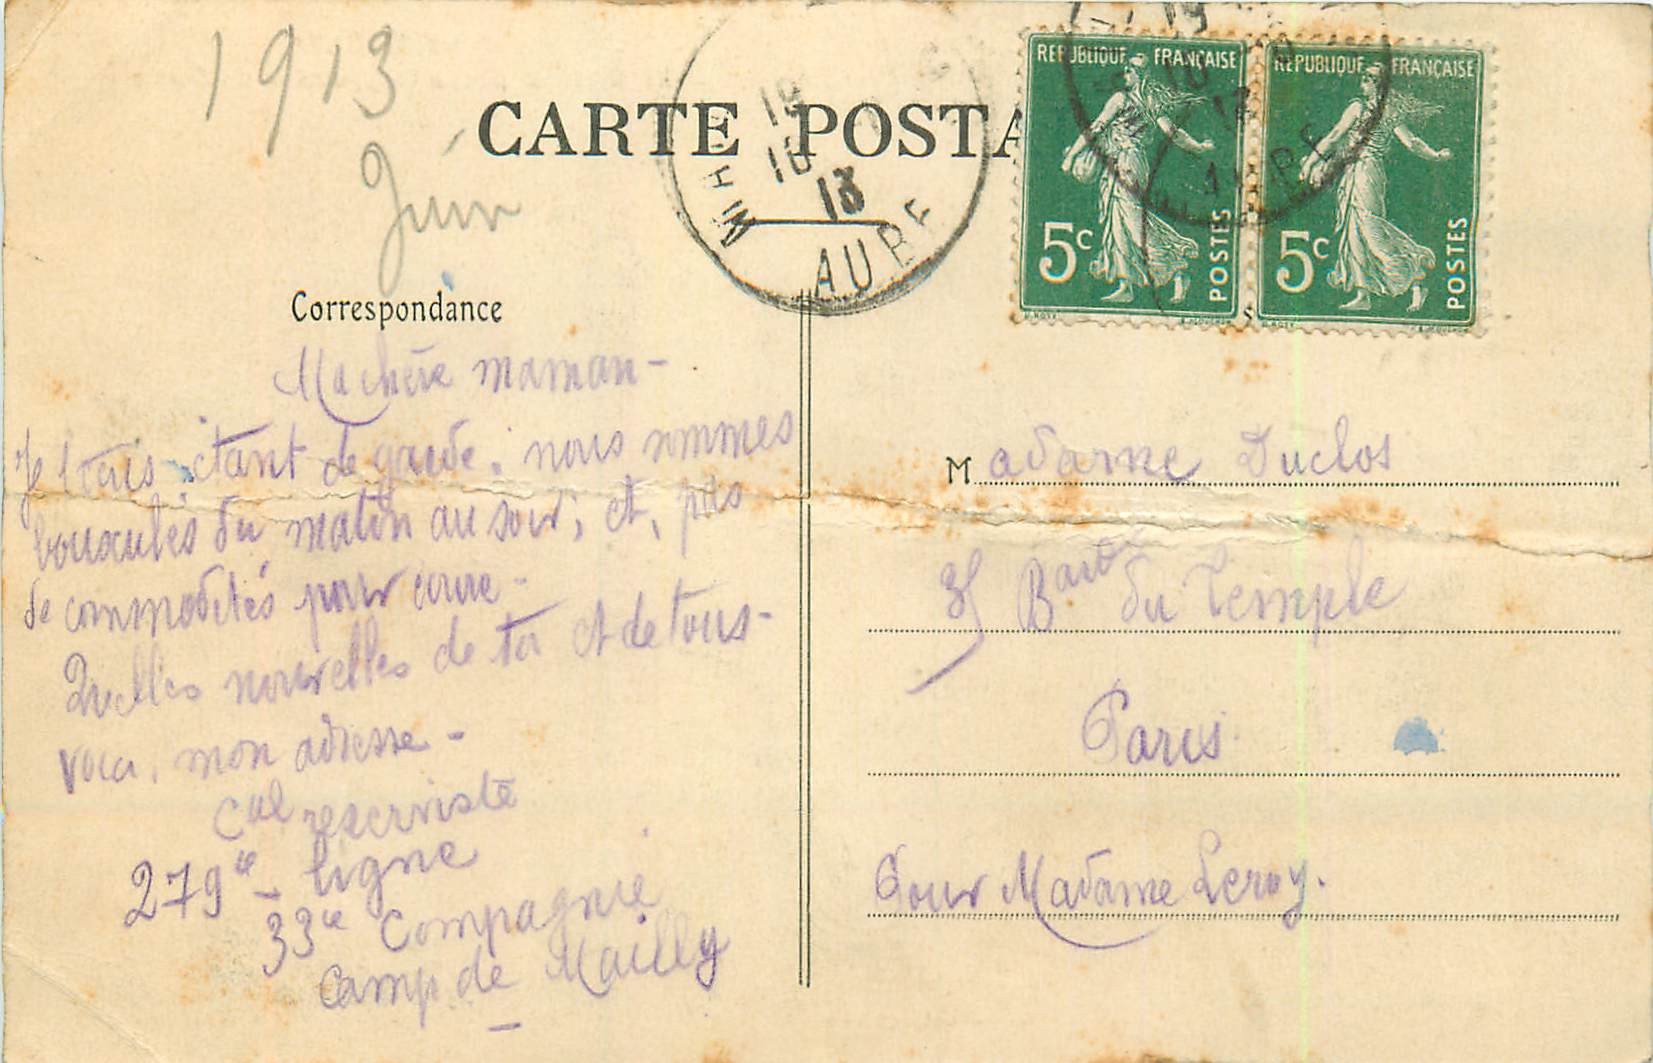 1913
Juin
CARTE POSTA
MAILLY
19
10
13
AUBE
REPUBLIQUE FRANÇAISE
5c
POSTES
REPUBLIQUE FRANÇAISE
5c
POSTES
Correspondance
Ma chère maman -
Je t'écris étant de garde. nous sommes
bousculés du matin au soir, et, pas
de commodités pour écrire -
Quelles nouvelles de toi et de tous -
voici, mon adresse -
Cal reserviste
279e ligne
33e Compagnie
Camp de Mailly
Madame Duclos
Bard du Temple
Paris
Pour Madame Leroy.